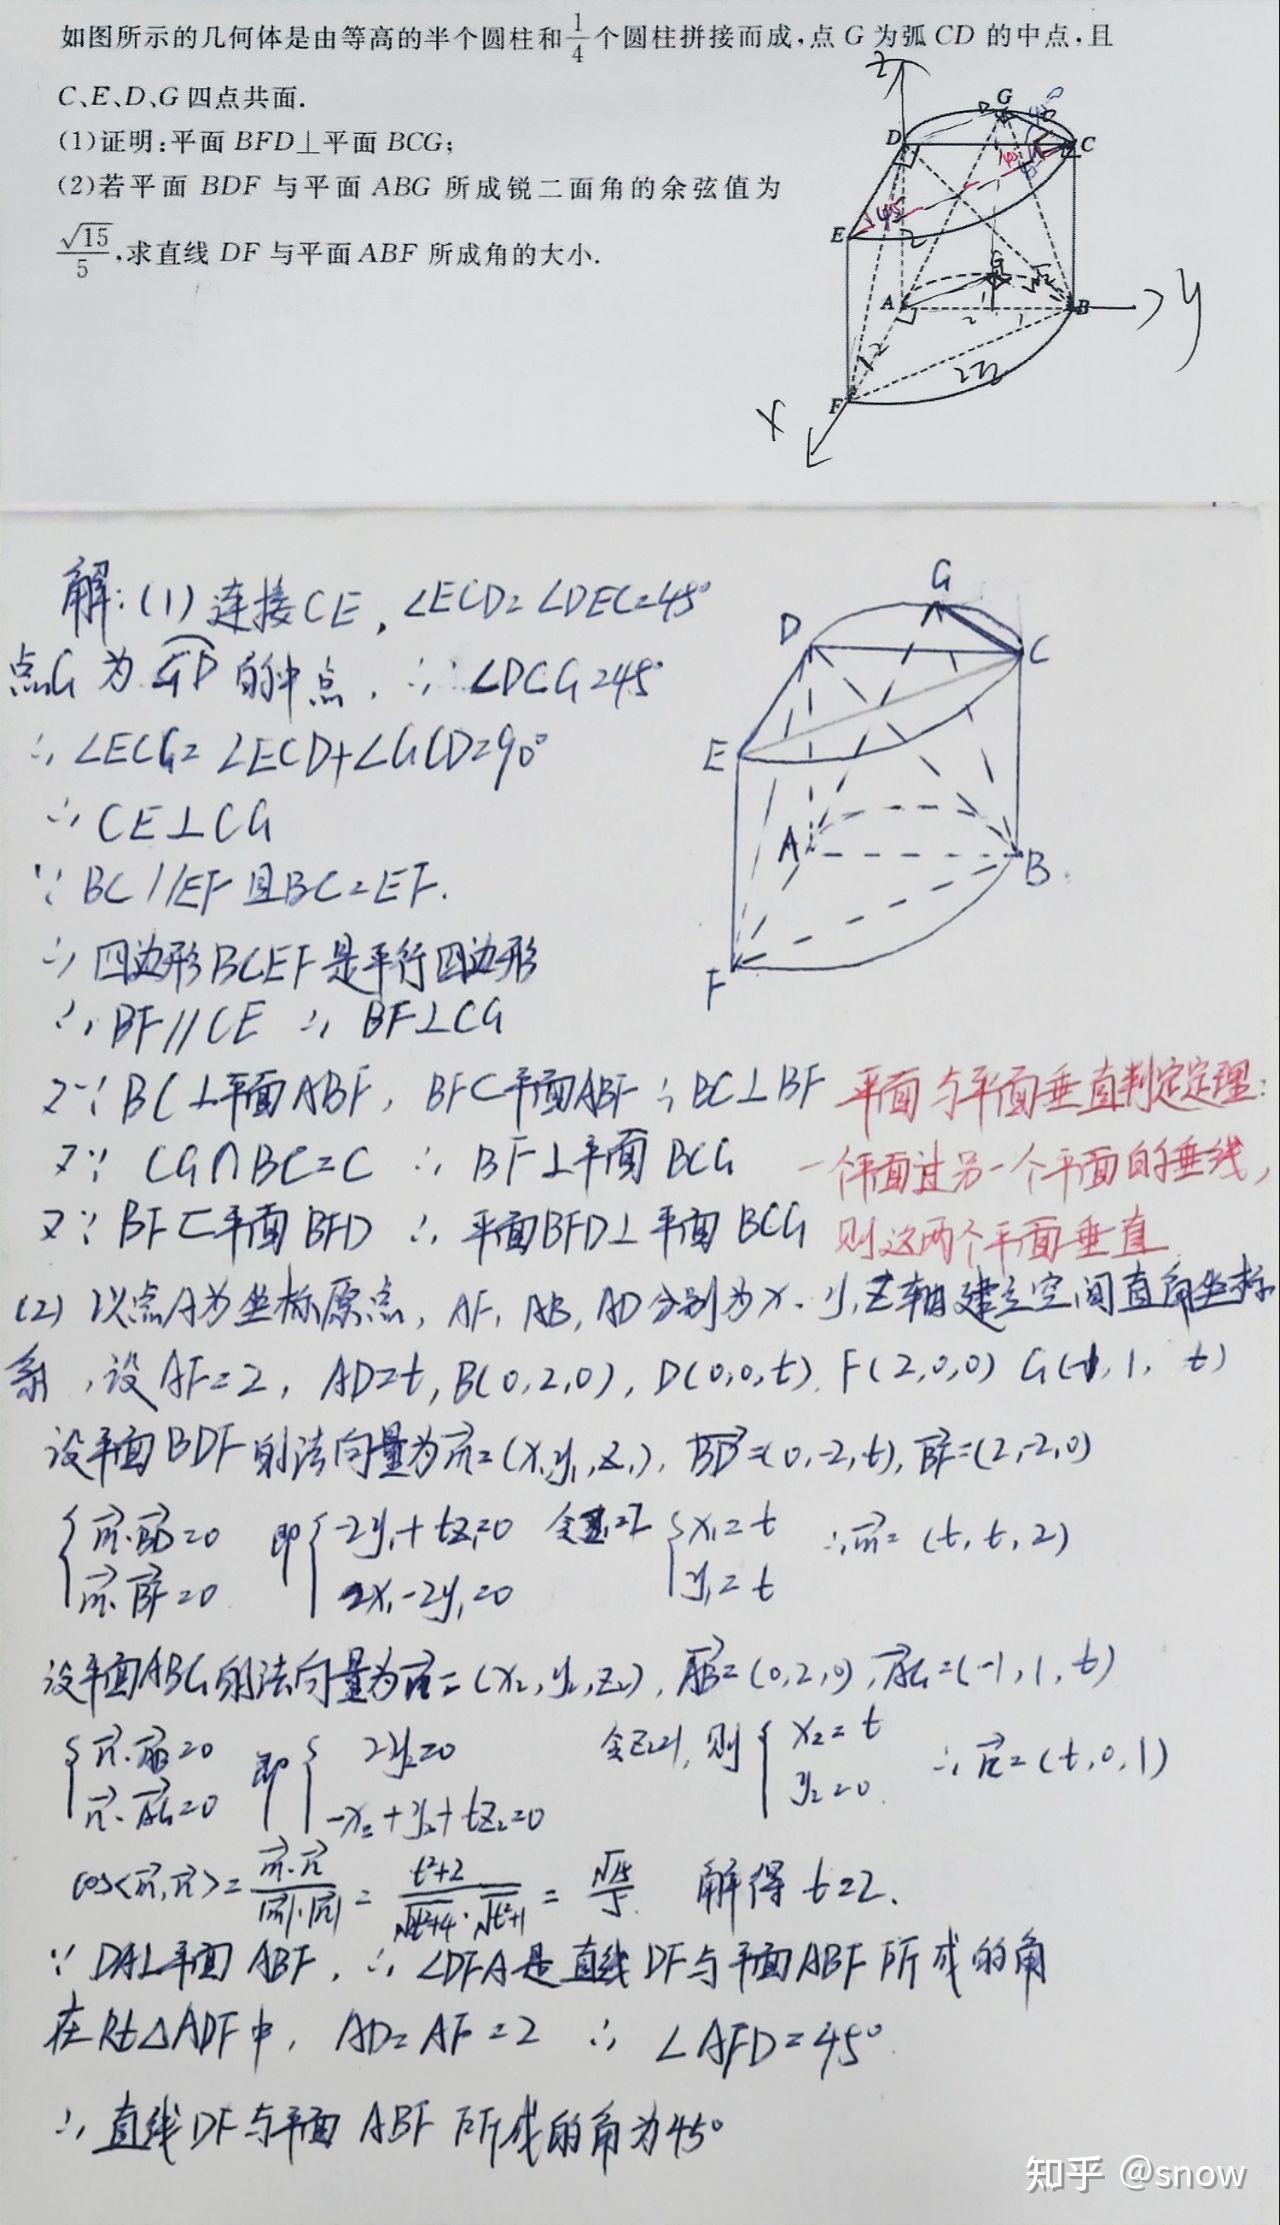 如图所示的几何体是由等高的半个圆柱和1/4个圆柱拼接而成,点G为弧CD的中点,且
C、E、D、G四点共面.
(1)证明:平面BFD⊥平面BCG;
(2)若平面BDF与平面ABG所成锐二面角的余弦值为
√15/5,求直线DF与平面ABF所成角的大小.
z
G
D
C
45
E
2
G
√2
A
B
y
2
1
2
2√2
F
x
解:(1)连接CE,∠ECD=∠DEC=45°
点G为⌒CD的中点,∴∠DCG=45°
∴∠ECG=∠ECD+∠GCD=90°
∴CE⊥CG
∵BC//EF且BC=EF.
∴四边形BCEF是平行四边形
∴BF//CE ∴BF⊥CG
又∵BC⊥平面ABF,BF⊂平面ABF∴BC⊥BF
又∵CG∩BC=C ∴BF⊥平面BCG
又∵BF⊂平面BFD ∴平面BFD⊥平面BCG
G
D
C
E
A
B
F
平面与平面垂直判定定理:
一个平面过另一个平面的垂线,
则这两个平面垂直
(2)以点A为坐标原点,AF,AB,AD分别为x、y,z轴建立空间直角坐标
系,设AF=2,AD=t,B(0,2,0),D(0,0,t).F(2,0,0) G(-1,1,t)
设平面BDF的法向量为m=(x₁,y₁,z₁),BD=(0,-2,t),BF=(2,-2,0)
{m·BD=0 即{-2y₁+tz₁=0 令z₁=2 {x₁=t ∴m=(t,t,2)
m·BF=0 2x₁-2y₁=0 y₁=t
设平面ABG的法向量为n=(x₂,y₂,z₂),AB=(0,2,0),AG=(-1,1,t)
{n·AB=0 即{2y₂=0 令z₂=1,则{x₂=t ∴n=(t,0,1)
n·AG=0 -x₂+y₂+tz₂=0 y₂=0.
cos<m,n>=m·n/|m|·|n|=t²+2/√2t²+4·√t²+1=√15/5 解得t=2.
∵DA⊥平面ABF,∴∠DFA是直线DF与平面ABF所成的角
在Rt△ADF中,AD=AF=2 ∴∠AFD=45°
∴直线DF与平面ABF所成的角为45°
知乎 @snow